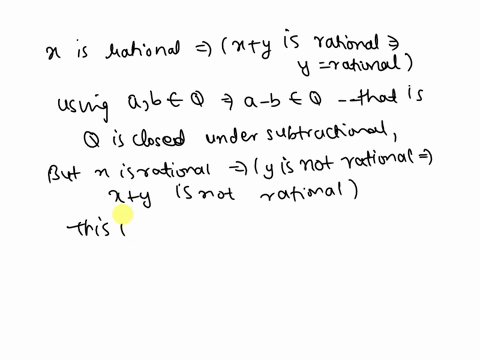 x is rational ⇒ (x+y is rational ⇒
y = rational)
using a,b ∈ Q ⇒ a-b ∈ Q --that is
Q is closed under subtractional,
But x is rational ⇒ (y is not rational ⇒
x+y is not rational)
this i